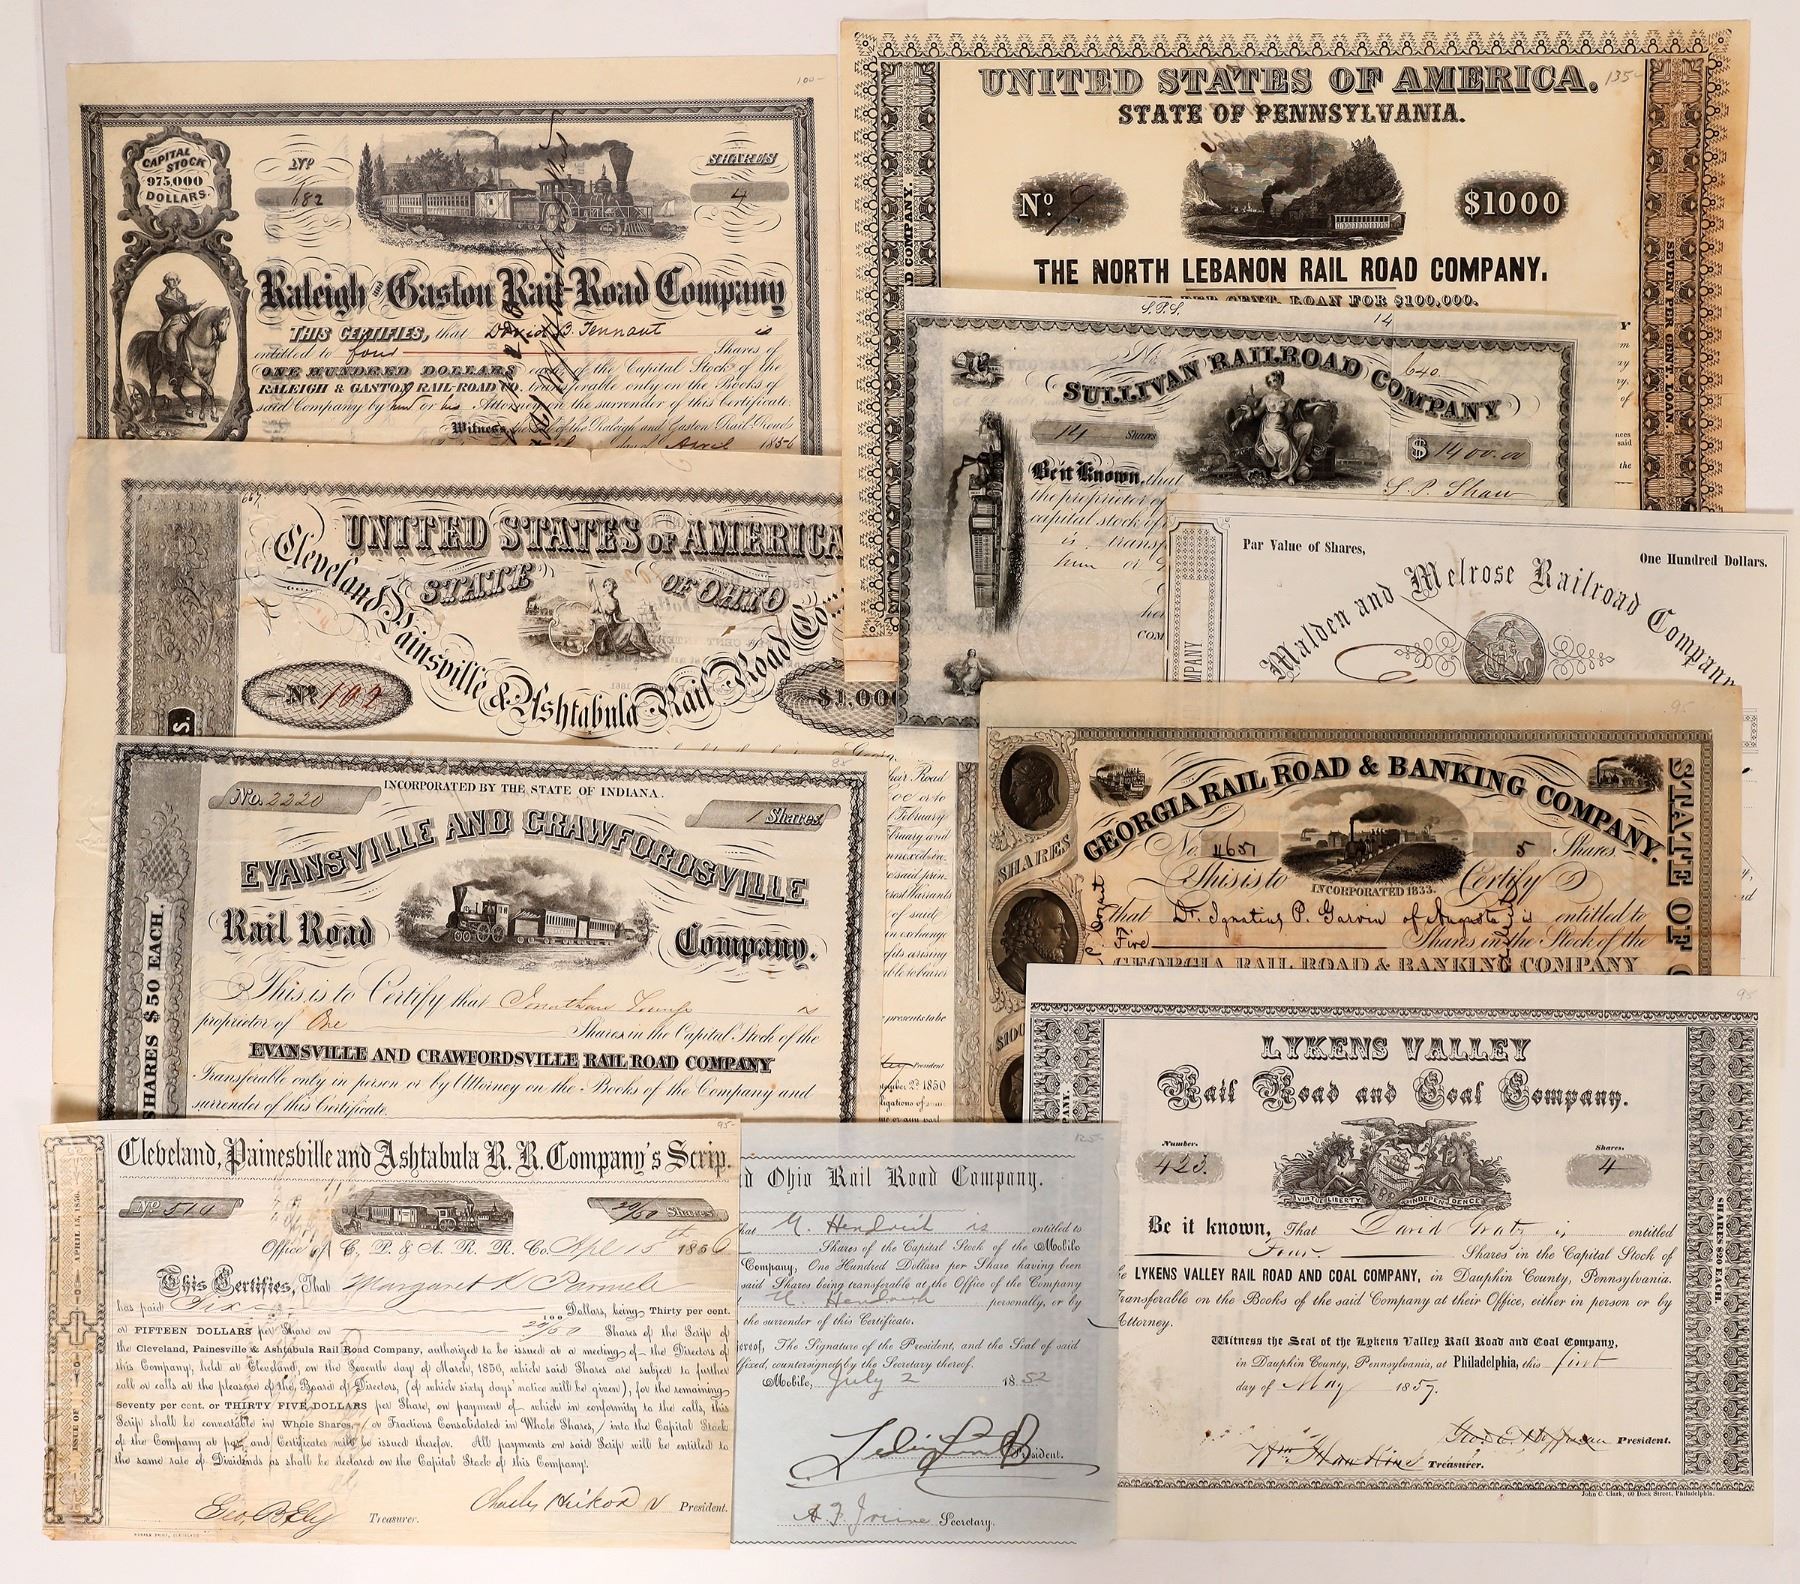 100-
CAPITAL STOCK 975,000 DOLLARS.
No
182
SHARES
4
Raleigh and Gaston Rail-Road Company
THIS CERTIFIES, that David B. Tennant is
entitled to four Shares of
ONE HUNDRED DOLLARS each of the Capital Stock of the
RALEIGH & GASTON RAIL-ROAD CO. transferable only on the Books of
said Company by him or his Attorney on the surrender of this Certificate.
Witness, the Seal of the Raleigh and Gaston Rail-Road
April 1856
135-
UNITED STATES OF AMERICA.
STATE OF PENNSYLVANIA.
No. 9
$1000
THE NORTH LEBANON RAIL ROAD COMPANY.
PER CENT. LOAN FOR $100,000.
SEVEN PER CENT. LOAN.
D COMPANY.
S.P.S.
14
No. 640
SULLIVAN RAILROAD COMPANY
14 Shares
$ 1400.00
Be it Known, that S. P. Shaw
the proprietor of
capital stock of
is transf
him or
COM
Par Value of Shares,
One Hundred Dollars.
Malden and Melrose Railroad Company
MPANY
667
UNITED STATES OF AMERICA
STATE OF OHIO
Cleveland Painsville & Ashtabula Rail Road Com
No 102
$1,000
85-
No. 2220
INCORPORATED BY THE STATE OF INDIANA.
1 Shares
EVANSVILLE AND CRAWFORDSVILLE
Rail Road Company.
This is to Certify that Jonathan is
proprietor of One Shares in the Capital Stock of the
EVANSVILLE AND CRAWFORDSVILLE RAIL ROAD COMPANY
Transferable only in person or by Attorney on the Books of the Company and
surrender of this Certificate.
SHARES $50 EACH.
heir Road
February
of said
n exchange
presents to be
President
1850
95
GEORGIA RAIL ROAD & BANKING COMPANY.
STATE OF G
SHARES
STOC
No. 4651
5 Shares.
INCORPORATED 1833.
This is to Certify
that Dr. Ignatius P. Garvin of Augusta is entitled to
Five Shares in the Stock of the
GEORGIA RAIL ROAD & BANKING COMPANY
95
LYKENS VALLEY
Rail Road and Coal Company.
Number.
423.
Shares.
4
VIRTUE LIBERTY INDEPENDENCE
Be it known, That David Gratz is entitled
Four Shares in the Capital Stock of
LYKENS VALLEY RAIL ROAD AND COAL COMPANY, in Dauphin County, Pennsylvania.
Transferable on the Books of the said Company at their Office, either in person or by
Attorney.
Witness the Seal of the Lykens Valley Rail Road and Coal Company,
in Dauphin County, Pennsylvania, at Philadelphia, this first
day of May 1857.
President.
Treasurer.
SHARES $20 EACH.
PANY.
John C. Clark, 60 Dock Street, Philadelphia.
95-
Cleveland, Painesville and Ashtabula R. R. Company's Scrip.
No 514
20/50 Shares
Office of C, P. & A. R. R. Co. Apl 15th 1856
This Certifies, That Margaret
has paid Six Dollars, being Thirty per cent.
or FIFTEEN DOLLARS per Share on 20/50 Shares of the Scrip of
the Cleveland, Painesville & Ashtabula Rail Road Company, authorized to be issued at a meeting of the Directors of
this Company, held at Cleveland, on the Seventh day of March, 1856, which said Shares are subject to further
call or calls at the pleasure of the Board of Directors, (of which sixty days' notice will be given), for the remaining
Seventy per cent. or THIRTY FIVE DOLLARS per Share, on payment of which in conformity to the calls, this
Scrip shall be convertable in Whole Shares, or Fractions Consolidated in Whole Shares, into the Capital Stock
of the Company at par, and Certificates will be issued therefor. All payments on said Scrip will be entitled to
the same rate of Dividends as shall be declared on the Capital Stock of this Company.
Treasurer.
President.
ISSUE OF APRIL 15, 1856.
125-
d Ohio Rail Road Company.
hat is entitled to
Shares of the Capital Stock of the Mobile
Company, One Hundred Dollars per Share having been
said Shares being transferable at the Office of the Company
personally, or by
the surrender of this Certificate.
ereof, The Signature of the President, and the Seal of said
ffixed, countersigned by the Secretary thereof.
Mobile, July 2 1852
President.
Secretary.